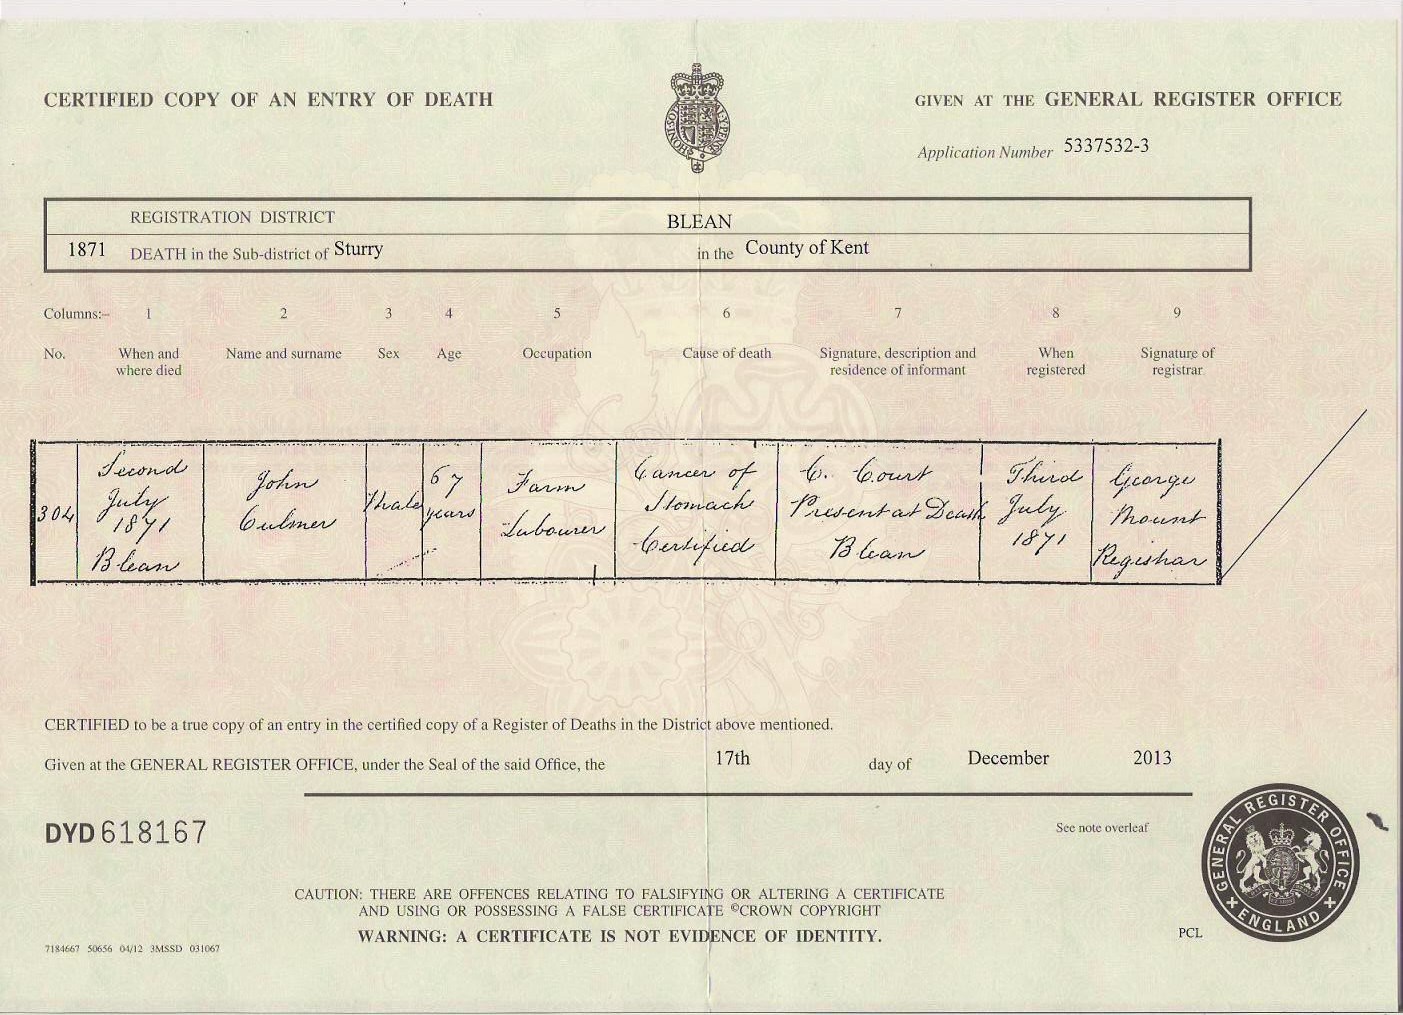 CERTIFIED COPY OF AN ENTRY OF DEATH
GIVEN AT THE GENERAL REGISTER OFFICE
Application Number 5337532-3
REGISTRATION DISTRICT BLEAN
1871 DEATH in the Sub-district of Sturry in the County of Kent
Columns:- 1 2 3 4 5 6 7 8 9
No. When and where died Name and surname Sex Age Occupation Cause of death Signature, description and residence of informant When registered Signature of registrar
304
Second
July
1871
Blean
John
Culmer
Male
67
years
Farm
Labourer
Cancer of
Stomach
Certified
C. Court
Present at Death
Blean
Third
July
1871
George
Mount
Registrar
CERTIFIED to be a true copy of an entry in the certified copy of a Register of Deaths in the District above mentioned.
Given at the GENERAL REGISTER OFFICE, under the Seal of the said Office, the 17th day of December 2013
DYD 618167
See note overleaf
CAUTION: THERE ARE OFFENCES RELATING TO FALSIFYING OR ALTERING A CERTIFICATE
AND USING OR POSSESSING A FALSE CERTIFICATE ©CROWN COPYRIGHT
WARNING: A CERTIFICATE IS NOT EVIDENCE OF IDENTITY.
7184667 50656 04/12 3MSSD 031067
PCL
GENERAL REGISTER OFFICE
ENGLAND